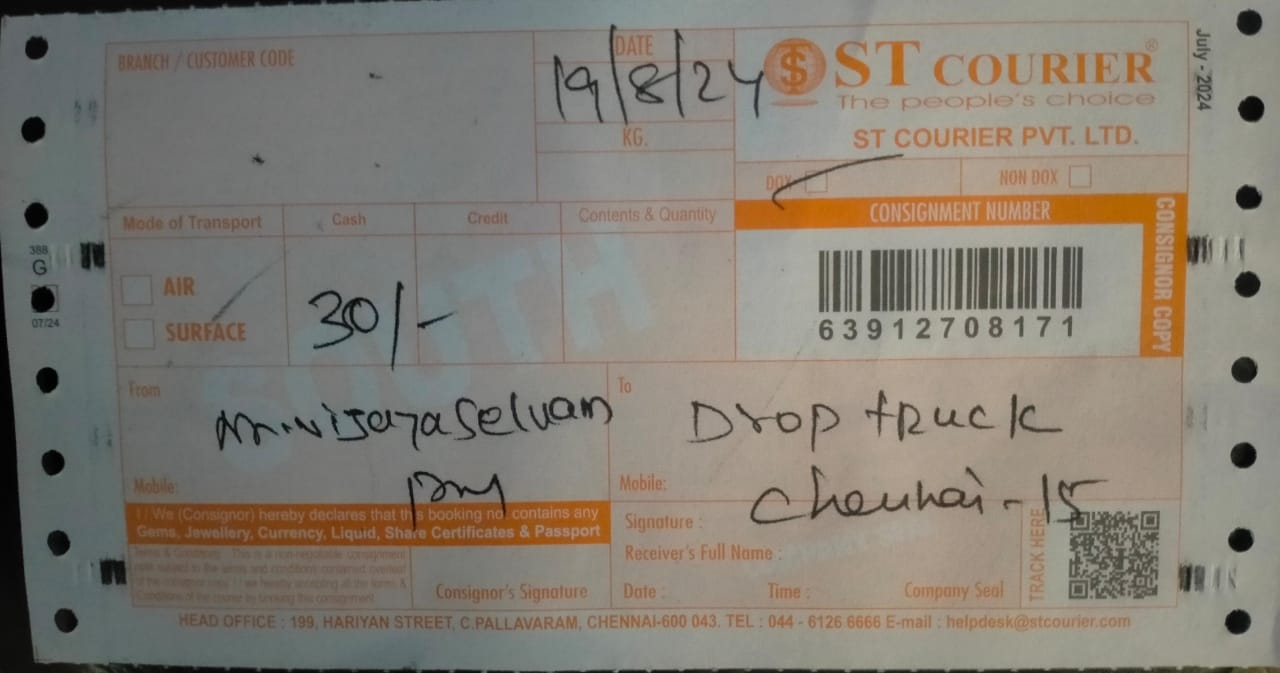 BRANCH / CUSTOMER CODE
DATE
19/8/24
KG.
ST COURIER®
The people's choice
ST COURIER PVT. LTD.
July - 2024
DOX
NON DOX
Mode of Transport
Cash
Credit
Contents & Quantity
CONSIGNMENT NUMBER
CONSIGNOR COPY
388
G
07/24
AIR
SURFACE
30/-
SOUTH
63912708171
From
VijayaSelvam
Mobile:
To
Drop truck
Mobile:
Chennai - 15
I / We (Consignor) hereby declares that this booking not contains any
Gems, Jewellery, Currency, Liquid, Share Certificates & Passport
Terms & Conditions : This is a non-negotiable consignment
note subject to the terms and conditions contained overleaf
of the consignor copy. I / we hereby accepting all the terms &
Conditions of the courier by booking this consignment.
Consignor's Signature
Signature :
Receiver's Full Name :
Date :
Time :
Company Seal
TRACK HERE
HEAD OFFICE : 199, HARIYAN STREET, C.PALLAVARAM, CHENNAI-600 043. TEL : 044 - 6126 6666 E-mail : helpdesk@stcourier.com